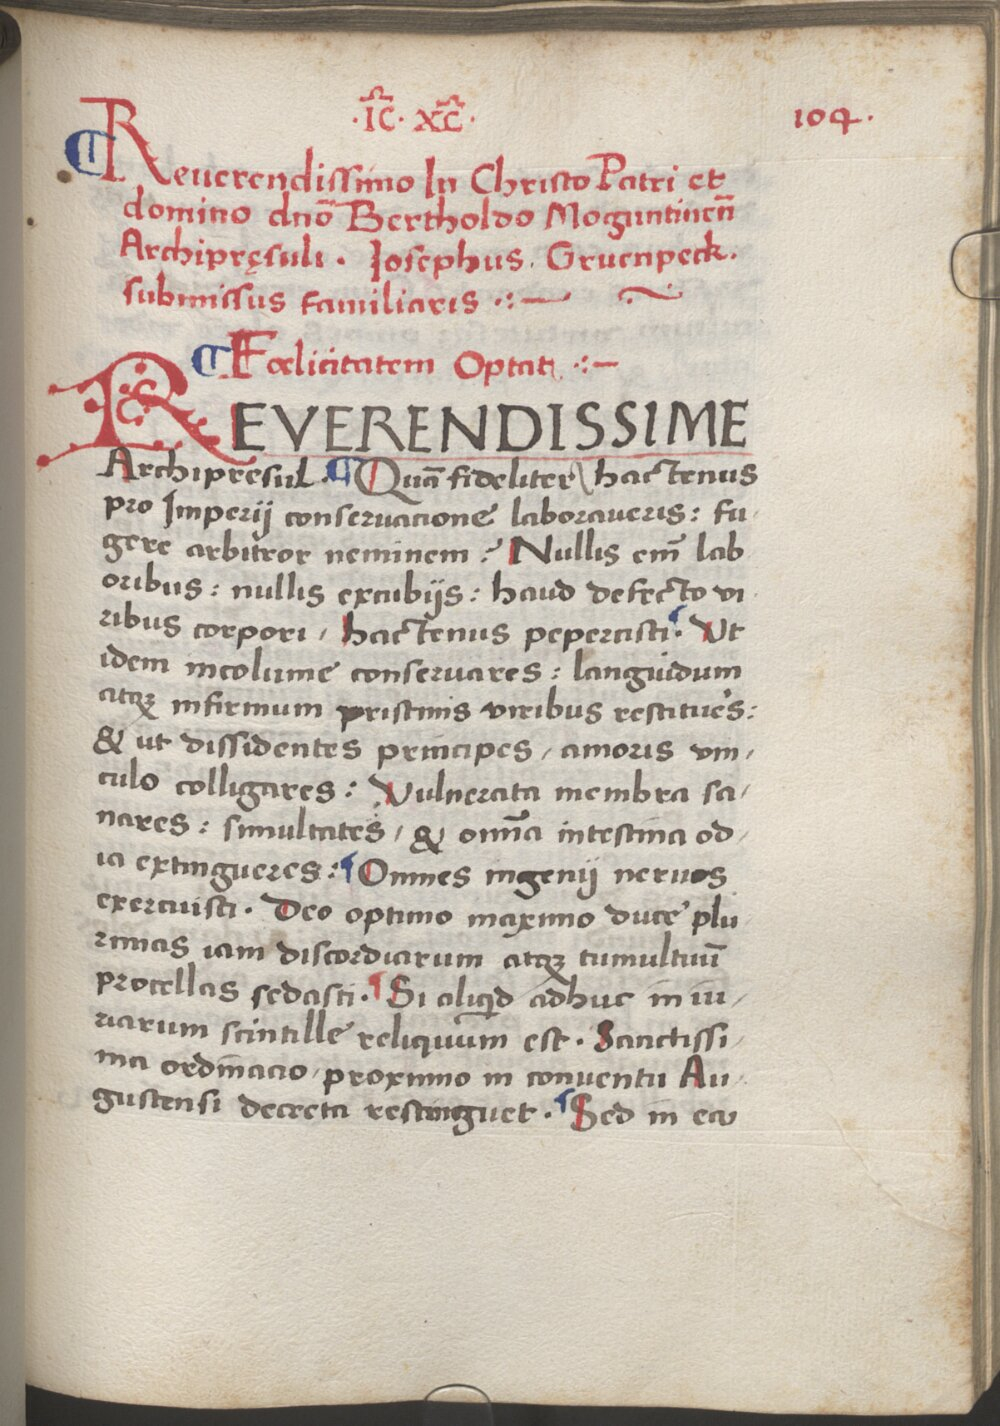 ·IC̅· XC̅·
104·
Reuerendissimo In Christo Patri et
domino dno᷈ Bertholdo Moguntinen̅
Archipręsuli · Iosephus · Gruenpeck·
submissus familiaris ·:— ~
Fœlicitatem Optat ·:—
REVERENDISSIME
Archipręsul · Quā fideliter hactenus
pro Imperij conseruatione laboraueris: fu-
gere arbitror neminem: Nullis em̅ lab
oribus: nullis excubijs: haud defecto vi-
ribus corpori, hactenus pepercisti· Vt
idem incolume conseruares: languidum
atqꝫ infirmum pristinis viribus restitues:
& ut dissidentes principes, amoris vin,
culo colligares: Vulnerata membra sa,
nares: simultates, & omn̅ia intestina od,
ia extingueres: Omnes ingenij neruos
exercuisti· Deo optimo maximo duce plu
rimas iam discordiarum atqꝫ tumultuū
procellas sedasti· Si aliqid adhuc in iu,
riarum scintille reliquum est· Sanctissi,
ma ordinacio, proximo in conuentu Au,
gustensi decreta restinguet· Sed in eo